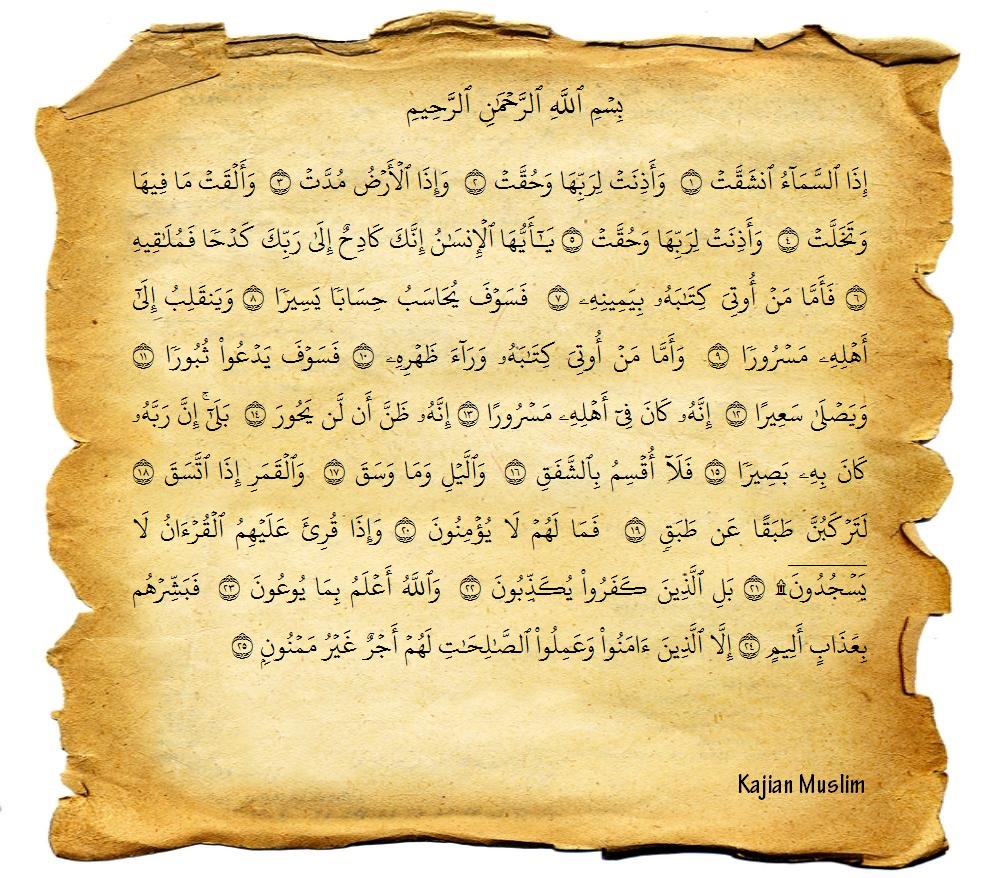 بِسۡمِ ٱللَّهِ ٱلرَّحۡمَٰنِ ٱلرَّحِيمِ
إِذَا ٱلسَّمَآءُ ٱنشَقَّتۡ ١ وَأَذِنَتۡ لِرَبِّهَا وَحُقَّتۡ ٢ وَإِذَا ٱلۡأَرۡضُ مُدَّتۡ ٣ وَأَلۡقَتۡ مَا فِيهَا
وَتَخَلَّتۡ ٤ وَأَذِنَتۡ لِرَبِّهَا وَحُقَّتۡ ٥ يَٰٓأَيُّهَا ٱلۡإِنسَٰنُ إِنَّكَ كَادِحٌ إِلَىٰ رَبِّكَ كَدۡحٗا فَمُلَٰقِيهِ
٦ فَأَمَّا مَنۡ أُوتِيَ كِتَٰبَهُۥ بِيَمِينِهِۦ ٧ فَسَوۡفَ يُحَاسَبُ حِسَابٗا يَسِيرٗا ٨ وَيَنقَلِبُ إِلَىٰٓ
أَهۡلِهِۦ مَسۡرُورٗا ٩ وَأَمَّا مَنۡ أُوتِيَ كِتَٰبَهُۥ وَرَآءَ ظَهۡرِهِۦ ١٠ فَسَوۡفَ يَدۡعُواْ ثُبُورٗا ١١
وَيَصۡلَىٰ سَعِيرًا ١٢ إِنَّهُۥ كَانَ فِيٓ أَهۡلِهِۦ مَسۡرُورًا ١٣ إِنَّهُۥ ظَنَّ أَن لَّن يَحُورَ ١٤ بَلَىٰٓۚ إِنَّ رَبَّهُۥ
كَانَ بِهِۦ بَصِيرٗا ١٥ فَلَآ أُقۡسِمُ بِٱلشَّفَقِ ١٦ وَٱلَّيۡلِ وَمَا وَسَقَ ١٧ وَٱلۡقَمَرِ إِذَا ٱتَّسَقَ ١٨
لَتَرۡكَبُنَّ طَبَقًا عَن طَبَقٖ ١٩ فَمَا لَهُمۡ لَا يُؤۡمِنُونَ ٢٠ وَإِذَا قُرِئَ عَلَيۡهِمُ ٱلۡقُرۡءَانُ لَا
يَسۡجُدُونَ۩ ٢١ بَلِ ٱلَّذِينَ كَفَرُواْ يُكَذِّبُونَ ٢٢ وَٱللَّهُ أَعۡلَمُ بِمَا يُوعُونَ ٢٣ فَبَشِّرۡهُم
بِعَذَابٍ أَلِيمٍ ٢٤ إِلَّا ٱلَّذِينَ ءَامَنُواْ وَعَمِلُواْ ٱلصَّٰلِحَٰتِ لَهُمۡ أَجۡرٌ غَيۡرُ مَمۡنُونِۭ ٢٥
Kajian Muslim